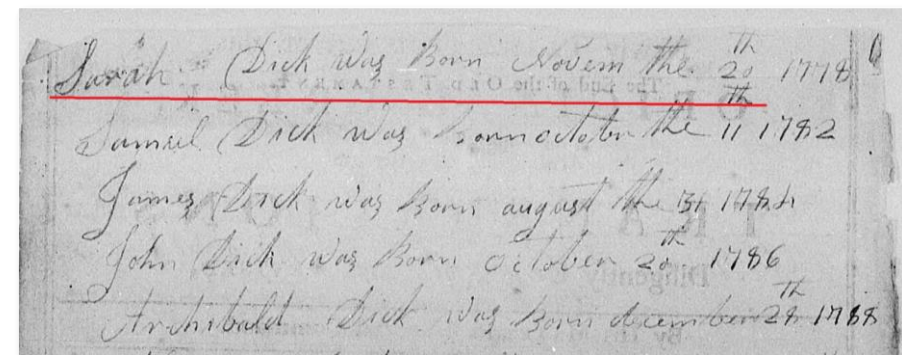 Sarah Dick was Born Novem the 20th 1778
Samuel Dick was born october the 11th 1782
James Dick was Born august the 31 1784
John Dick was Born October 20th 1786
Archibald Dick was Born december 28th 1788